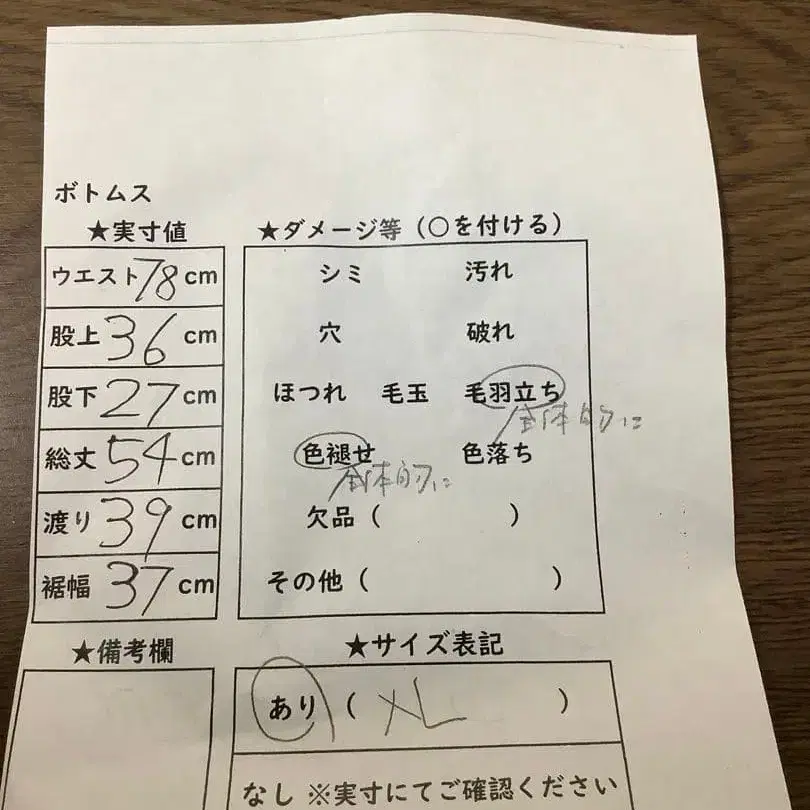 ボトムス
★実寸値
ウエスト 78 cm
股上 36 cm
股下 27 cm
総丈 54 cm
渡り 39 cm
裾幅 37 cm
★ダメージ等（○を付ける）
シミ 汚れ
穴 破れ
ほつれ 毛玉 毛羽立ち
全体的に
色褪せ 色落ち
全体的に
欠品（ ）
その他（ ）
★備考欄
★サイズ表記
あり（ XL ）
なし ※実寸にてご確認ください